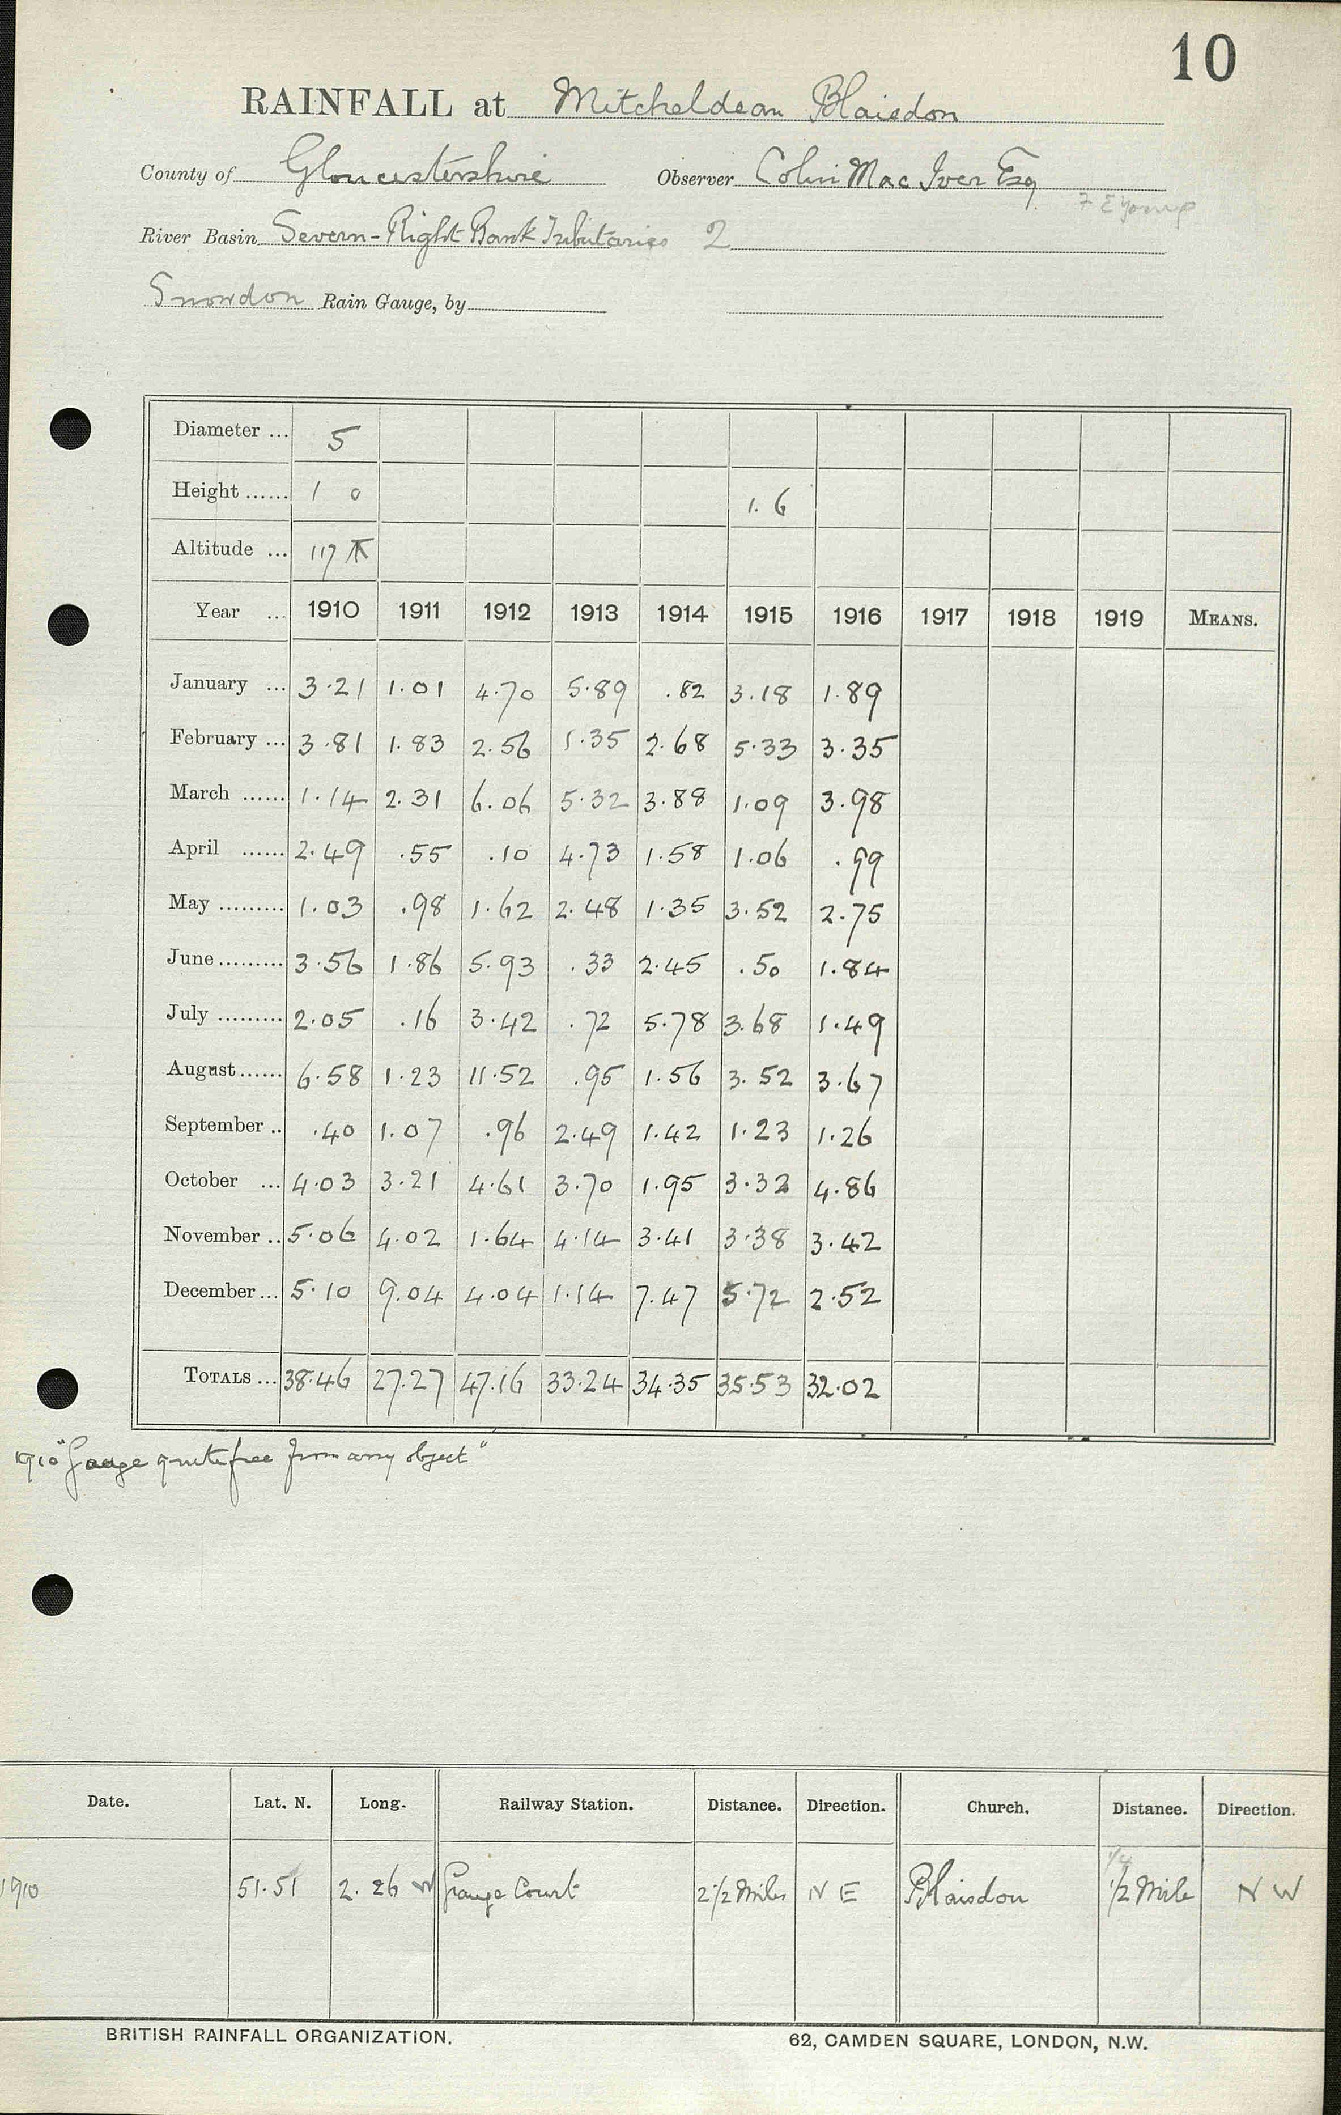 10
RAINFALL at Mitcheldean Blaisdon
County of Gloucestershire Observer Colin Mac Iver Esq
River Basin Severn - Right Bank Tributaries 2
Snowdon Rain Gauge, by
Diameter ... 5
Height ...... 1 0 1.6
Altitude ... 117
Year ... 1910 1911 1912 1913 1914 1915 1916 1917 1918 1919 MEANS.
January ... 3.21 1.01 4.70 5.89 .82 3.18 1.89
February ... 3.81 1.83 2.56 1.35 2.68 5.33 3.35
March ...... 1.14 2.31 6.06 5.32 3.88 1.09 3.98
April ...... 2.49 .55 .10 4.73 1.58 1.06 .99
May ......... 1.03 .98 1.62 2.48 1.35 3.52 2.75
June ......... 3.56 1.86 5.93 .33 2.45 .50 1.84
July ......... 2.05 .16 3.42 .72 5.78 3.68 1.49
August ...... 6.58 1.23 11.52 .95 1.56 3.52 3.67
September .. .40 1.07 .96 2.49 1.42 1.23 1.26
October ... 4.03 3.21 4.61 3.70 1.95 3.32 4.86
November .. 5.06 4.02 1.64 4.14 3.41 3.38 3.42
December ... 5.10 9.04 4.04 1.14 7.47 5.72 2.52
TOTALS ... 38.46 27.27 47.16 33.24 34.35 35.53 32.02
1910 "Gauge quite free from any object"
Date. Lat. N. Long. Railway Station. Distance. Direction. Church. Distance. Direction.
1/4
1910 51.51 2.26 W Grange Court 2 1/2 Miles N E Blaisdon 1/2 Mile N W
BRITISH RAINFALL ORGANIZATION. 62, CAMDEN SQUARE, LONDON, N.W.